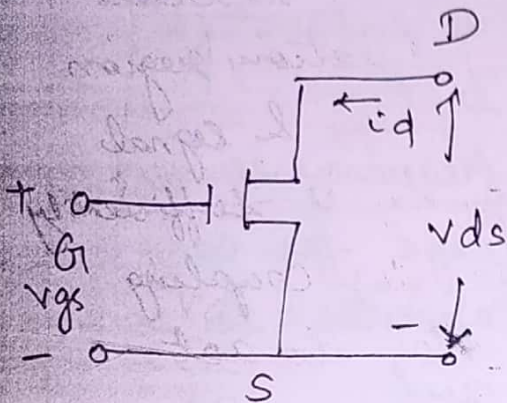 D
← id
+
G
vgs
vds
-
-
S